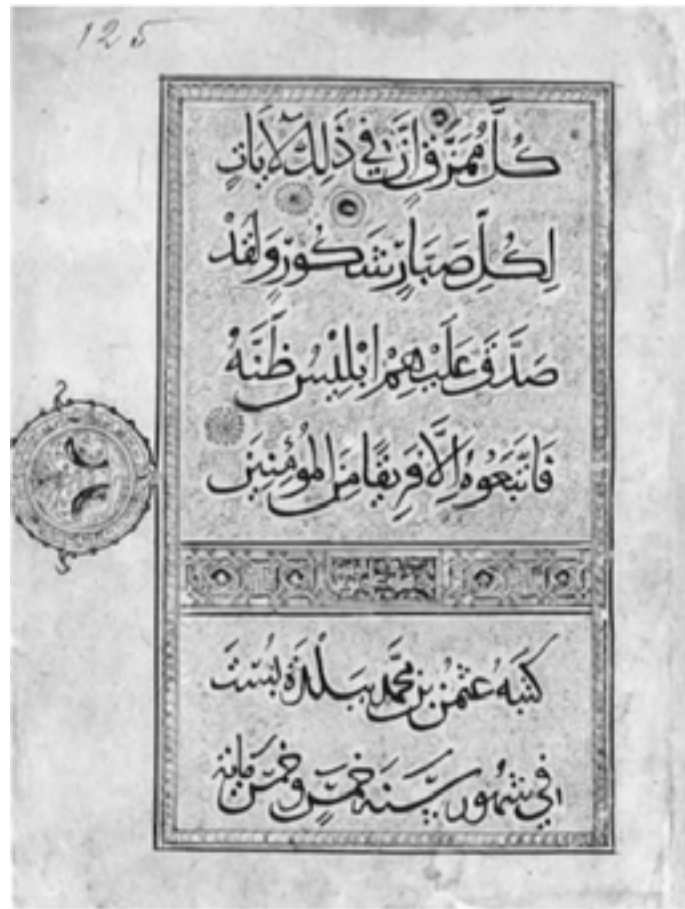 125
كُلَّ مُمَزَّقٍ اِنَّ فِي ذَلِكَ لَآيَاتٍ
لِكُلِّ صَبَّارٍ شَكُورٍ وَلَقَدْ
صَدَّقَ عَلَيْهِمْ اِبْلِيسُ ظَنَّهُ
فَاتَّبَعُوهُ اِلَّا فَرِيقًا مِنَ الْمُؤْمِنِينَ
كتبهُ عثمٰنُ بن محمَّد ببلْدَة بُسْتَ
في شهُور سَنَة خمسٍ وخمسِ مايةٍ